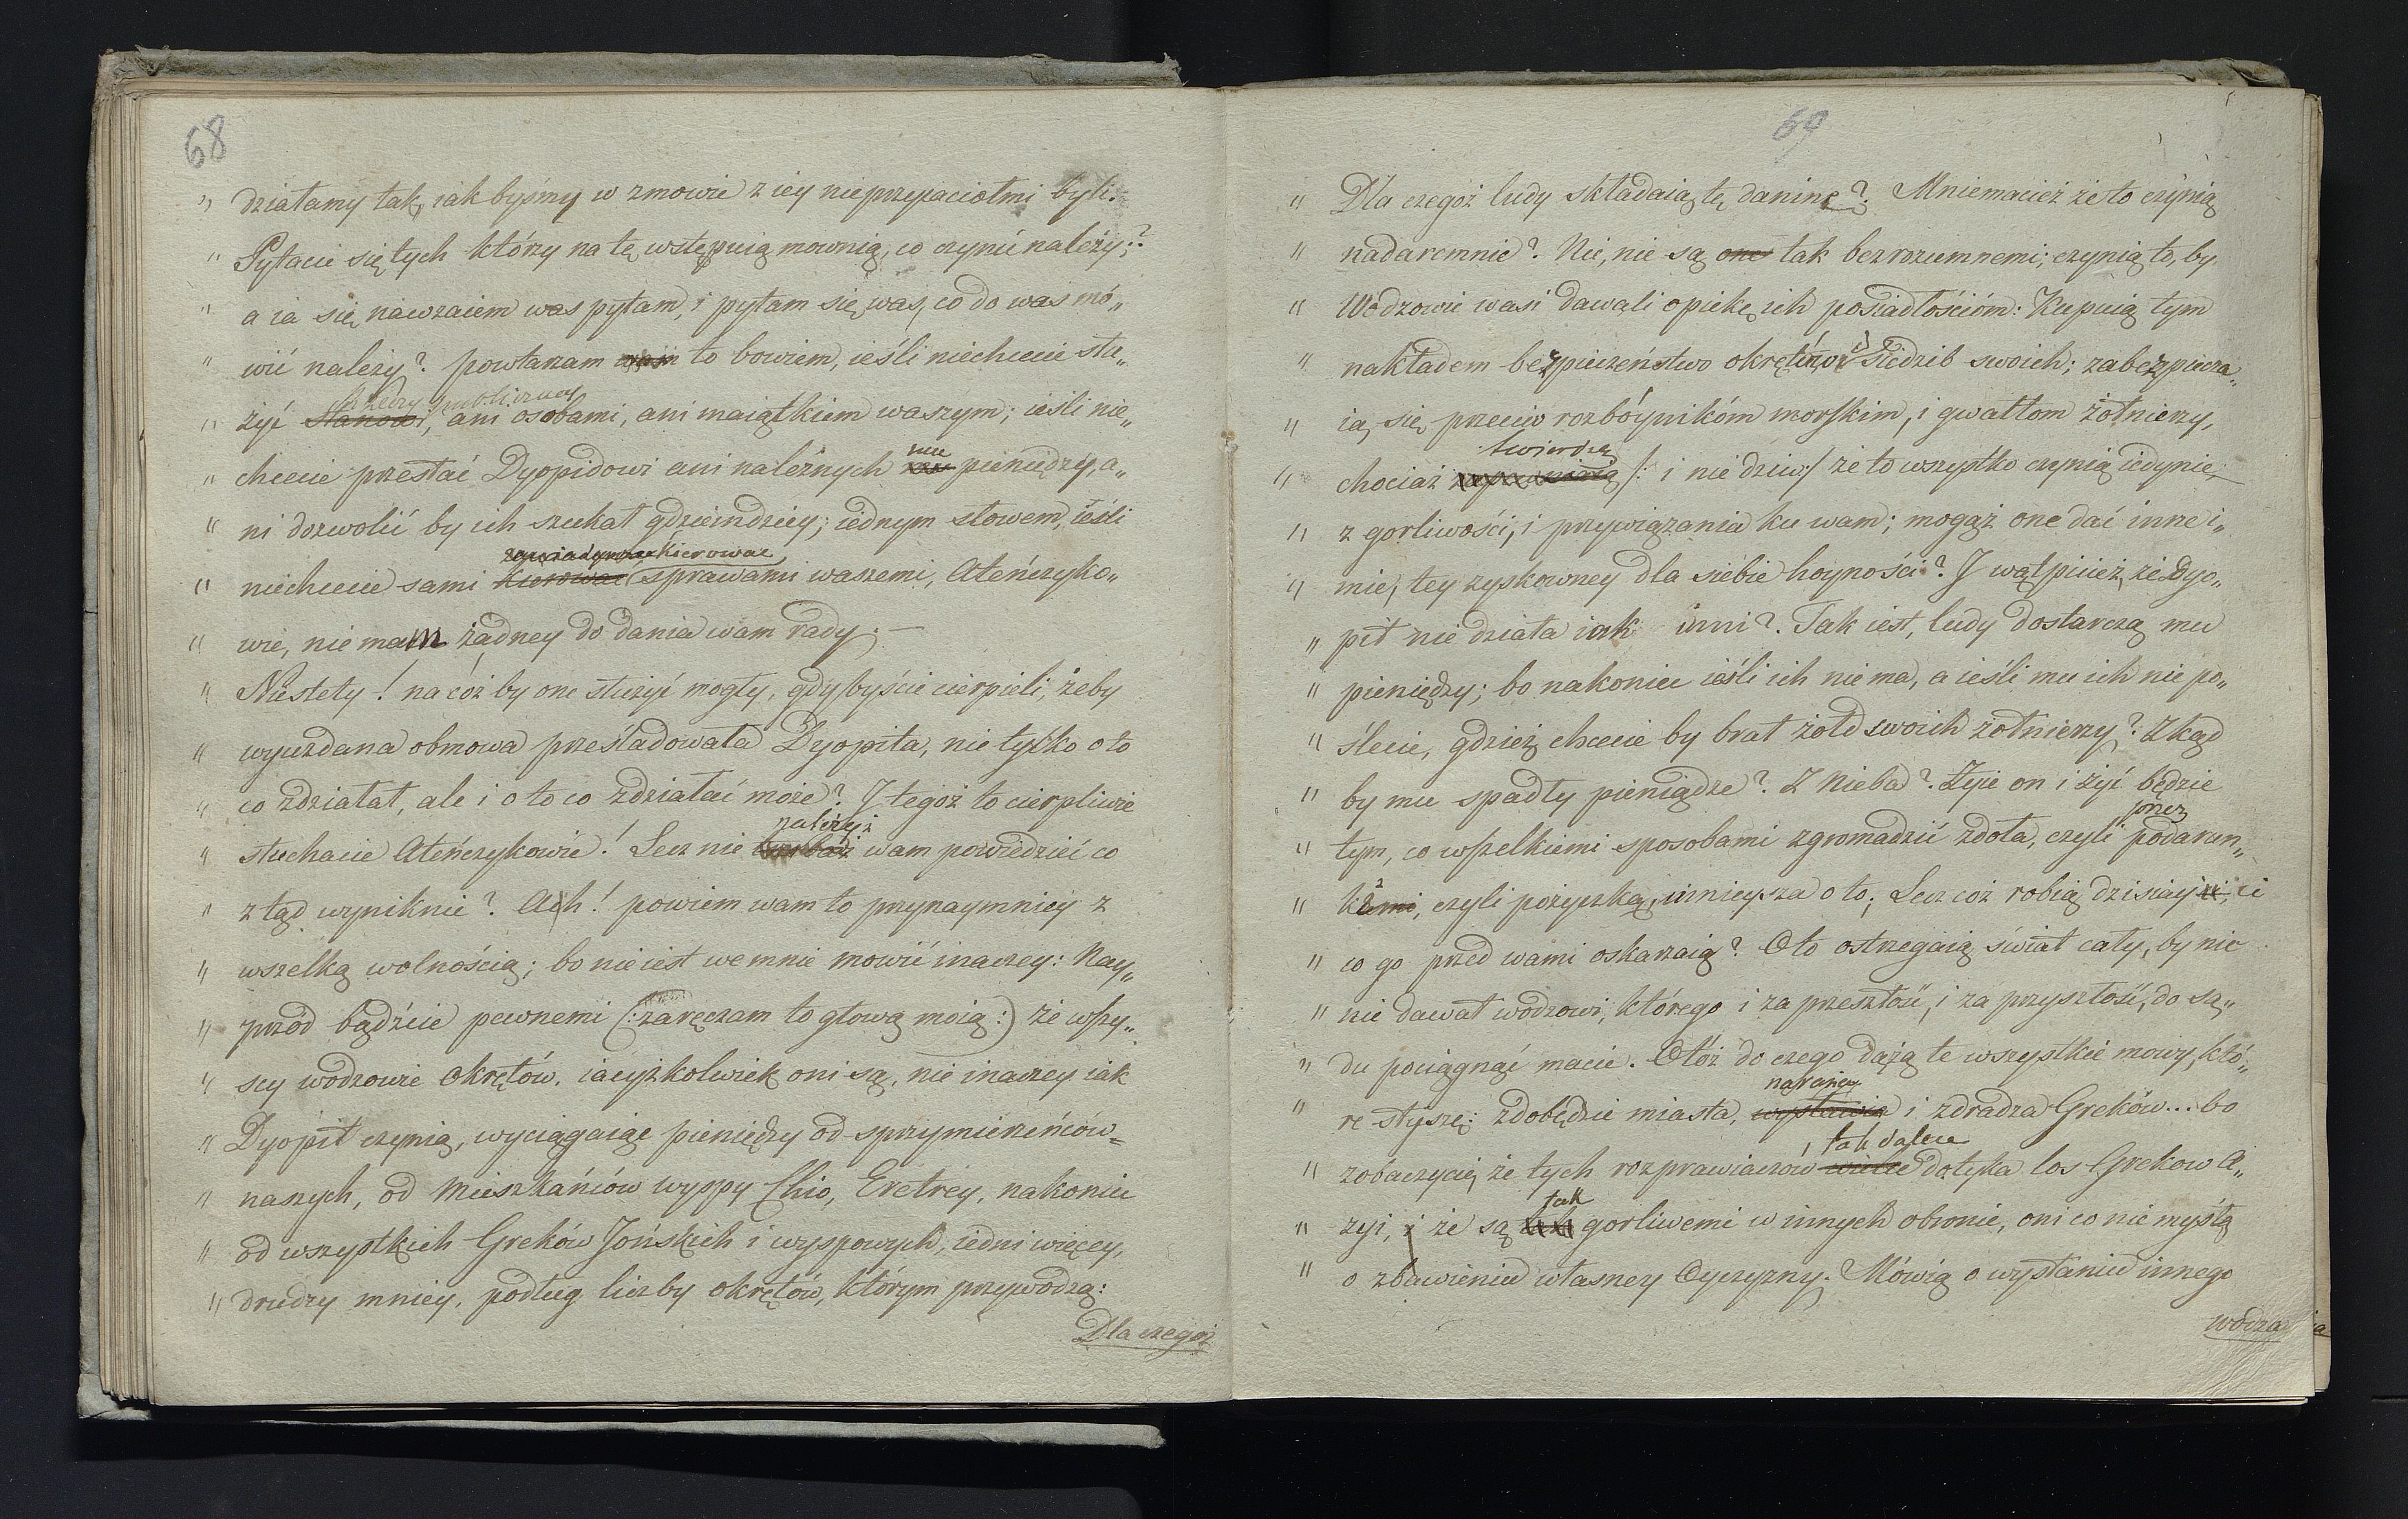 68
„ działamy tak, iak byśmy w zmowie z iey nieprzyiaciołmi byli.
„ Pytacie się tych którzy na tę wstępuią mownią, co czynić należy:?
„ a ia się nawzaiem was pytam, i pytam się was, co do was mó„
„ wić należy? powtarzam wam to bowiem, ieśli niechcecie słu„
Rzeczy publiczney
„ żyć Stanowi, ani osobami, ani maiątkiem waszym; ieśli nie„
mu
„ chcecie przesłać Dyopidowi ani należnych pieniędzy, a„
„ ni dozwolić by ich szukał gdzieindziey; iednym słowem, ieśli
zawiadywać kierować
„ niechcecie sami kierować sprawami waszemi, Ateńczyko„
„ wie, nie mam żadney do dania wam rady. —
„ Niestety! na cóż by one służyć mogły, gdybyście cierpieli, żeby
„ wyuzdana obmowa prześladowała Dyopita, nie tylko o to
„ co zdziałał, ale i o to co zdziałać może? I tegoż to cierpliwie
należyż
„ słuchacie Ateńczykowie! Lecz nie trzebaż wam powiedzieć co
„ ztąd wyniknie? Ach! powiem wam to przynaymniey z
„ wszelką wolnością; bo nie iest we mnie mowić inaczey: Nay„
„ przód bądźcie pewnemi (: zaręczam to głową moią :) że wszy„
„ scy wodzowie okrętów, iacyżkolwiek oni są, nie inaczey iak
„ Dyopit czynią, wyciągaiąc pieniędzy od sprzymierzeńców„
„ naszych, od Mieszkańców wyppy Chio, Eretrey, nakoniec
„ od wszystkich Greków Jońskich i wyspowych, iedni więcey,
„ drudzy mniey, podług liczby okrętów, którym przywodzą:
Dla czegoż
69
„ Dla czegóż ludy składaią tę daninę? Mniemacież że to czynią
„ nadaremnie? Nie, nie są one tak bezrozumnemi; czynią to, by
„ Wodzowie wasi dawali opiekę ich posiadłościóm: Kupuią tym
i
„ nakładem bezpieczeństwo okrętów Siedzib swoich; zabezpiecza„
„ ią się przeciw rozbóynikóm morskim, i gwałtom żołnierzy,
twierdzą
„ chociaż zapewniaią /: i nie dziw :/ że to wszystko czynią iedynie,
„ z gorliwości, i przywiązania ku wam; mogąż one dać inne i„
„ mie, tey zyskowney dla siebie hoyności? I wątpicież, że Dyo„
„ pit nie działa iak inni? Tak iest, ludy dostarczą mu
„ pieniędzy; bo nakoniec ieśli ich nie ma, a ieśli mu ich nie po„
„ ślecie, gdzież chcecie by brał żołd swoich żołnierzy? Zkąd
„ by mu spadły pieniądze? Z Nieba? Żyie on i żyć będzie
przez
„ tym, co wszelkiemi sposobami zgromadzić zdoła, czyli podarun„
„ kami, czyli pożyczką, mnieysza o to; Lecz coż robią dzisiay ci, ci
„ co go przed wami oskarzaią? Oto ostrzegaią świat cały, by nic
„ nie dawał wodzowi, którego i za przeszłość, i za przyszłość, do są„
„ du pociągnąć macie. Otóż do czego dążą te wszystkie mowy, któ„
naraża
„ re słyszę: zdobędzie miasta, wystawia i zdradza Greków... bo
tak dalece
„ zobaczycie, że tych rozprawiaczow wiele dotyka los Grekow A„
tak
„ zyi, i że są gorliwemi w innych obronie, oni co nie myślą
„ o zbawieniu własney Oyczyzny. Mówią o wysłaniu innego
wodza